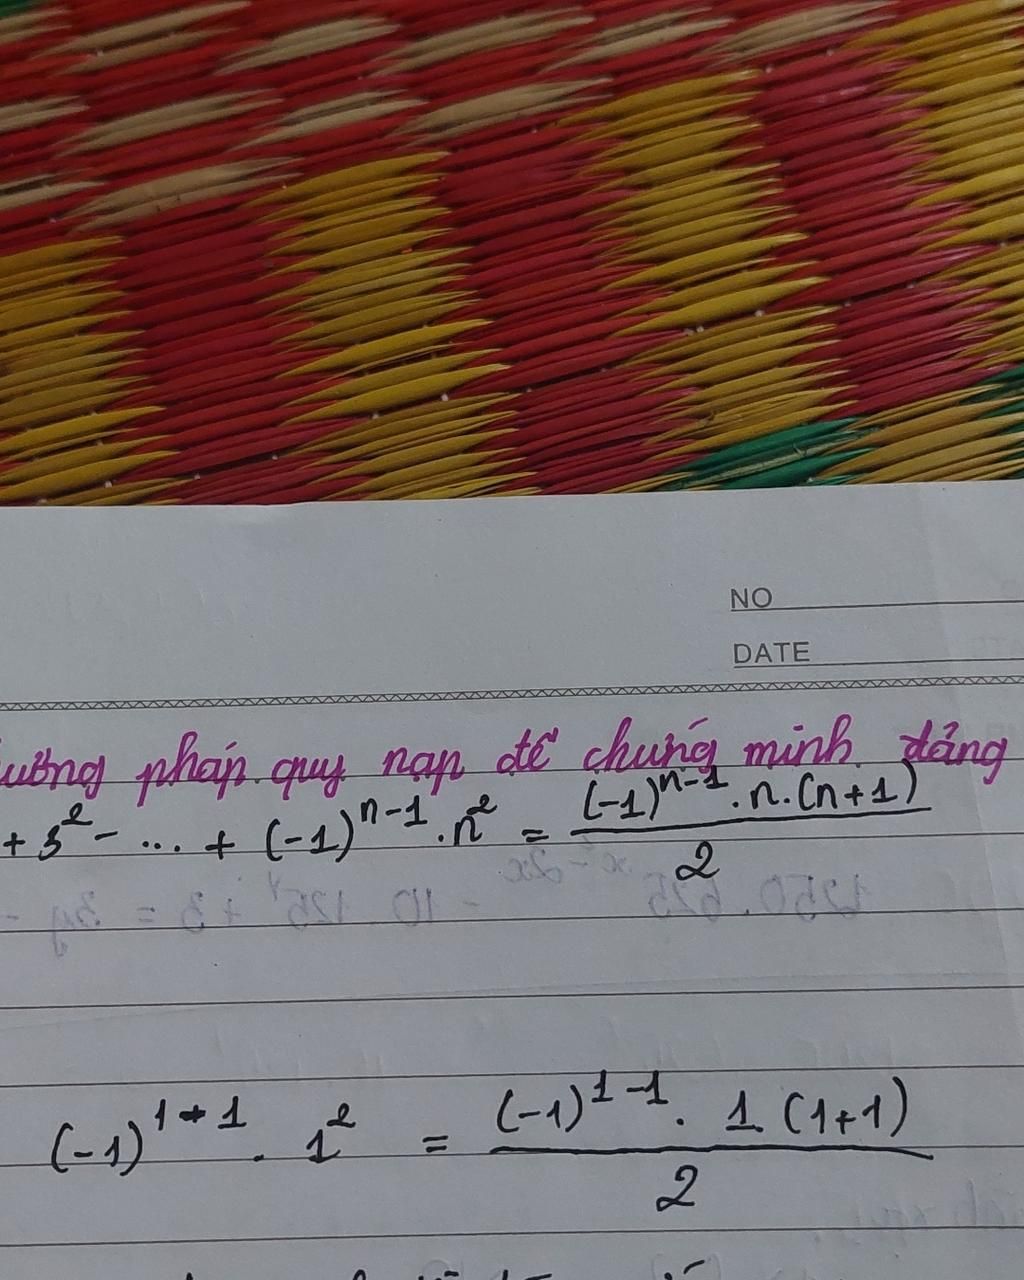 NO
DATE
pháp quy nạp để chứng minh đẳng
+ 3² - ... + (-1)ⁿ⁻¹ . n² = (-1)ⁿ⁻¹ . n . (n+1) / 2
(-1)¹⁺¹ . 1² = (-1)¹⁻¹ . 1 (1+1) / 2